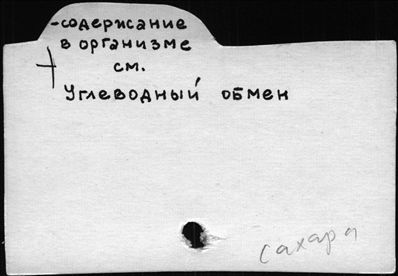 -содержание
в организме
см.
Углеводный обмен
сахара